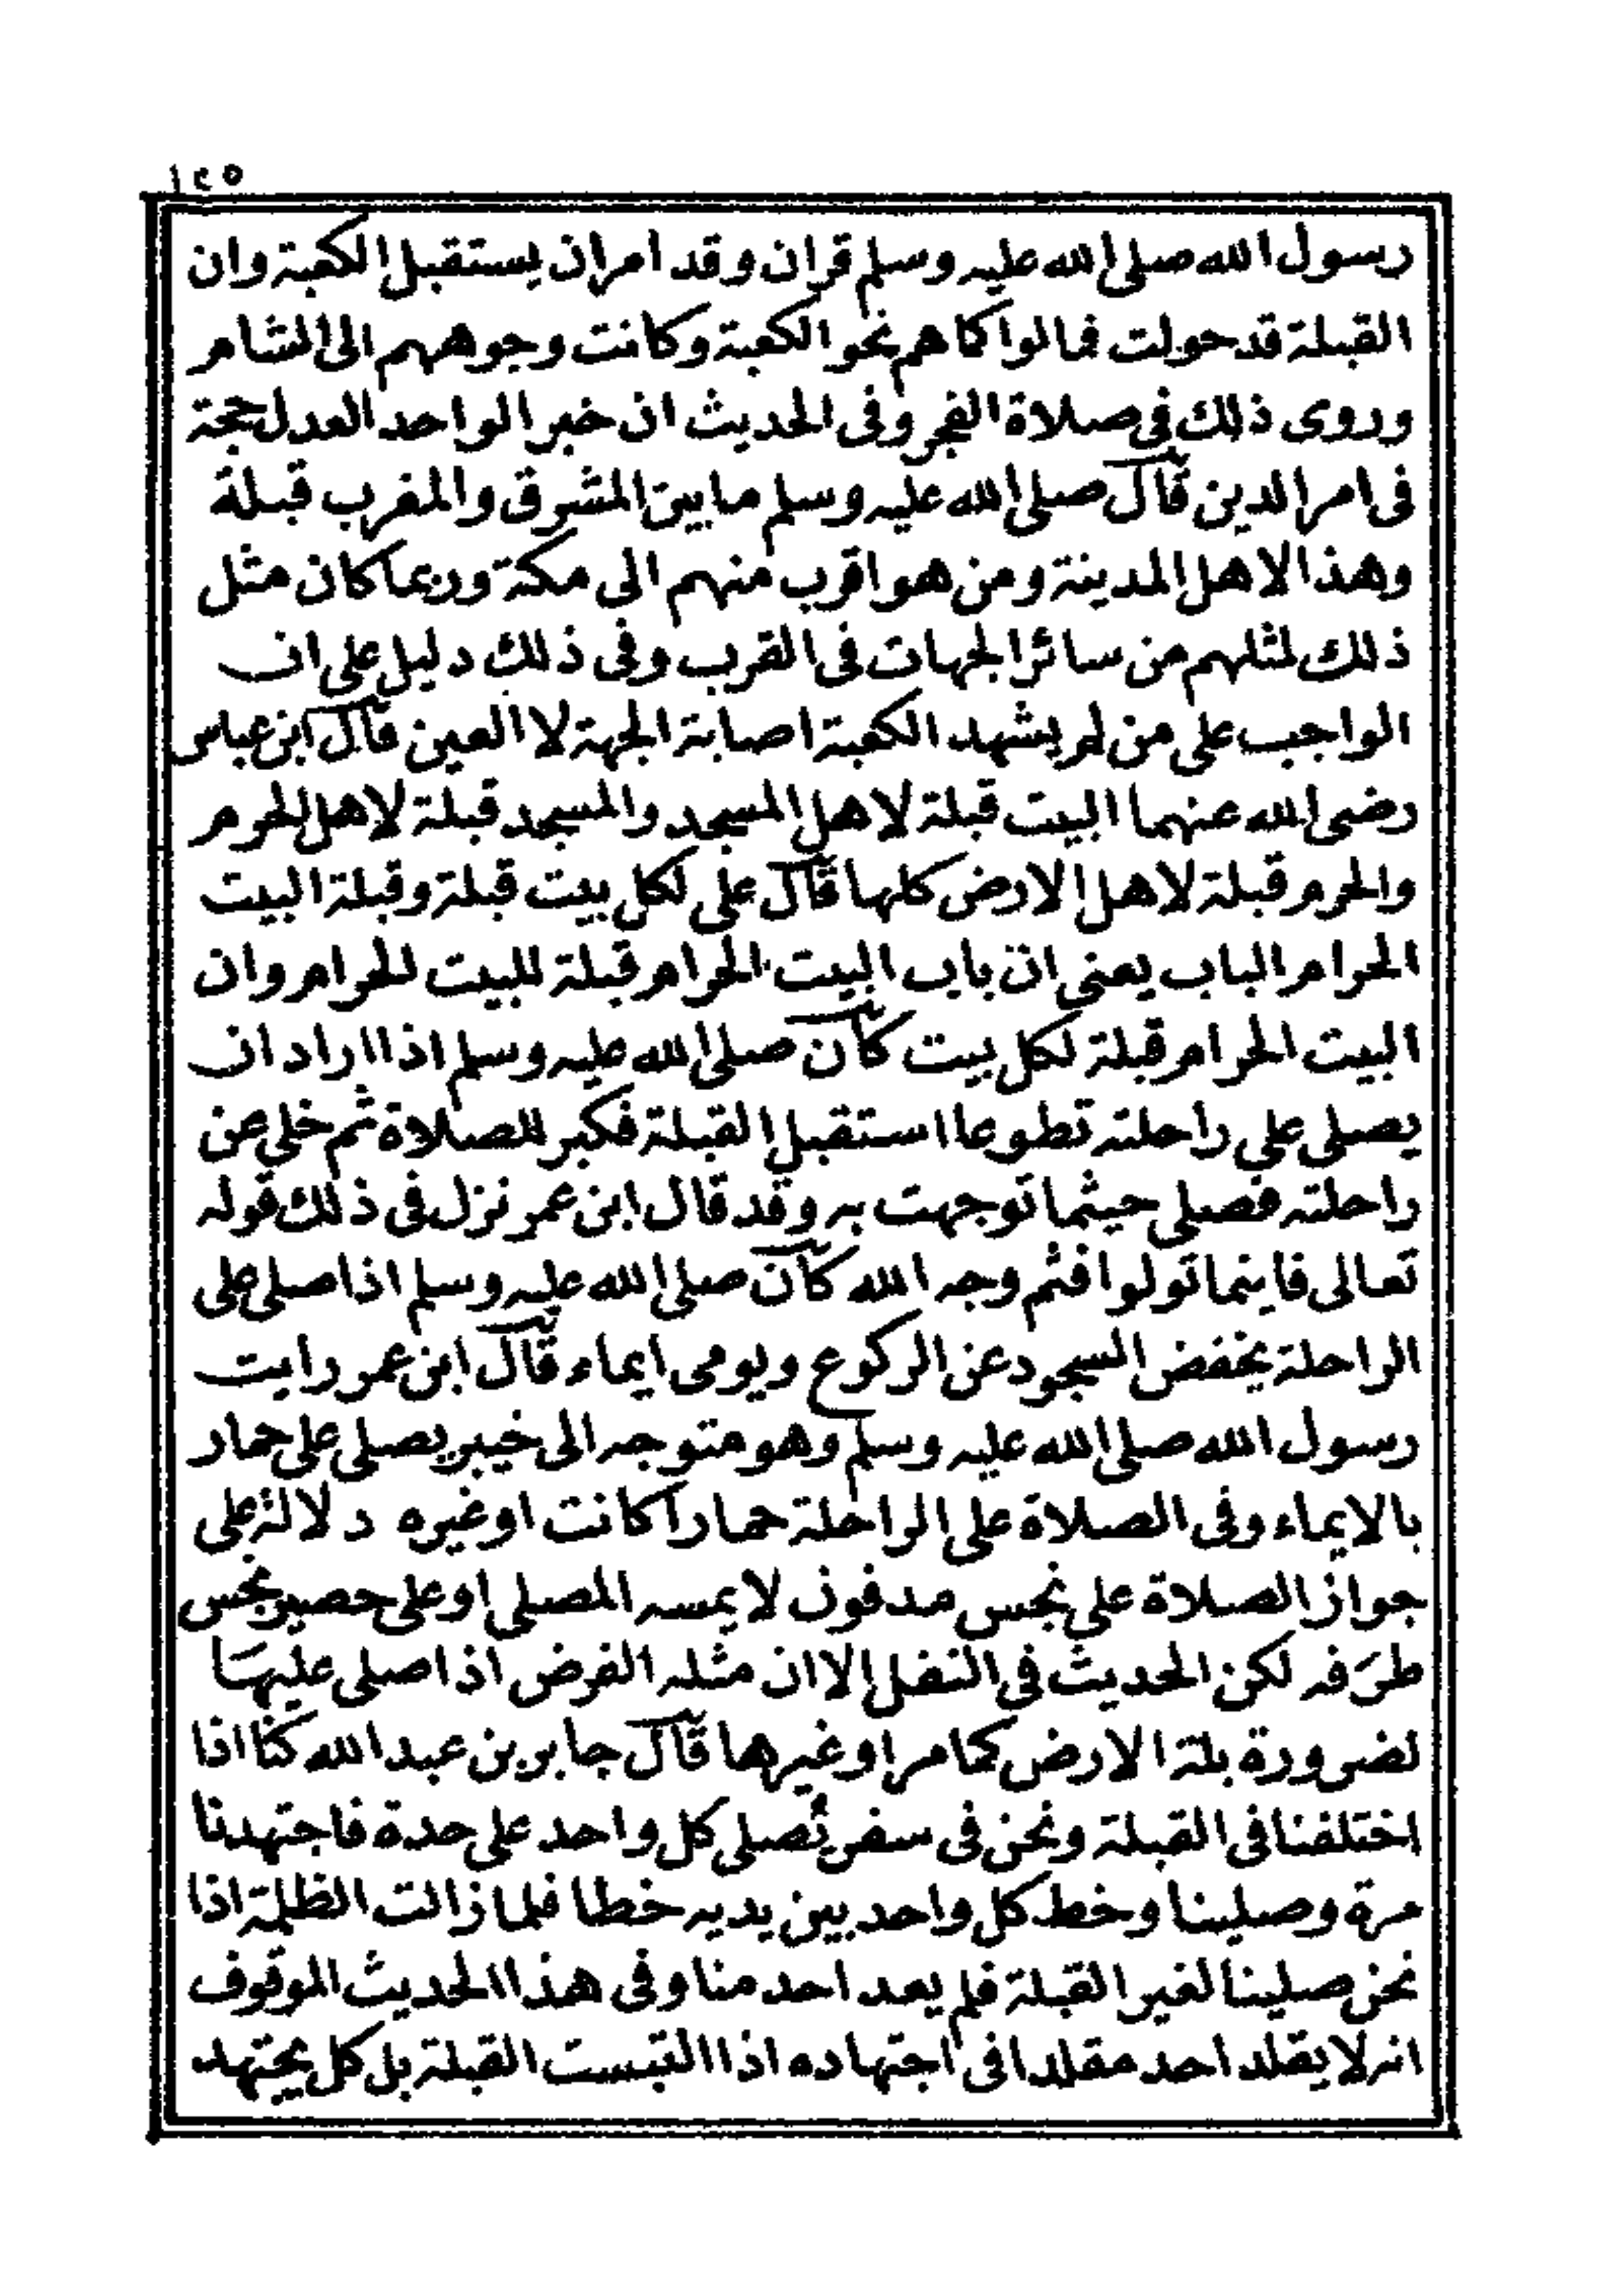 ١٢٥
رسول الله صلى الله عليه وسلم قرآن وقد امر ان يستقبل الكعبة وان
القبلة قد حولت فمالوا كما هم نحو الكعبة وكانت وجوههم الى الشام
وروى ذلك فى صلاة الفجر وفى الحديث ان خبر الواحد العدل حجة
فى امر الدين قال صلى الله عليه وسلم ما بين المشرق والمغرب قبلة
وهذا لاهل المدينة ومن هو اقرب منهم الى مكة وربما كان مثل
ذلك لمثلهم من سائر الجهات فى القرب وفى ذلك دليل على ان
الواجب على من لم يشهد الكعبة اصابة الجهة لا العين قال ابن عباس
رضى الله عنهما البيت قبلة لاهل المسجد والمسجد قبلة لاهل الحرم
والحرم قبلة لاهل الارض كلها قال على لكل بيت قبلة وقبلة البيت
الحرام الباب يعنى ان باب البيت الحرام قبلة للبيت الحرام وان
البيت الحرام قبلة لكل بيت كان صلى الله عليه وسلم اذا اراد ان
يصلى على راحلته تطوعا استقبل القبلة فكبر للصلاة ثم خلى عن
راحلته فصلى حيثما توجهت به وقد قال ابن عمر نزل فى ذلك قوله
تعالى فاينما تولوا فثم وجه الله كان صلى الله عليه وسلم اذا صلى على
الراحلة يخفض السجود عن الركوع ويومى ايماء قال ابن عمر رايت
رسول الله صلى الله عليه وسلم وهو متوجه الى خيبر يصلى على حمار
بالايماء وفى الصلاة على الراحلة حمارا كانت او غيره دلالة على
جواز الصلاة على نجس مدفون لا يمسه المصلى او على حصير نجس
طرَفه لكن الحديث فى النفل الا ان مثله الفرض اذا صلى عليهَا
لضرورة بلة الارض كما مر او غيرها قال جابر بن عبد الله كنا اذا
اختلفنا فى القبلة ونحن فى سفر نُصلى كل واحد على حدة فاجتهدنا
مرة وصلينا وخط كل واحد بين يديه خطا فلما زالت الظلمة اذا
نحن صلينا لغير القبلة فلم يعد احد منا وفى هذا الحديث الموقوف
انه لا يقلد احد مقلدا فى اجتهاده اذا التبست القبلة بل كل يجتهد